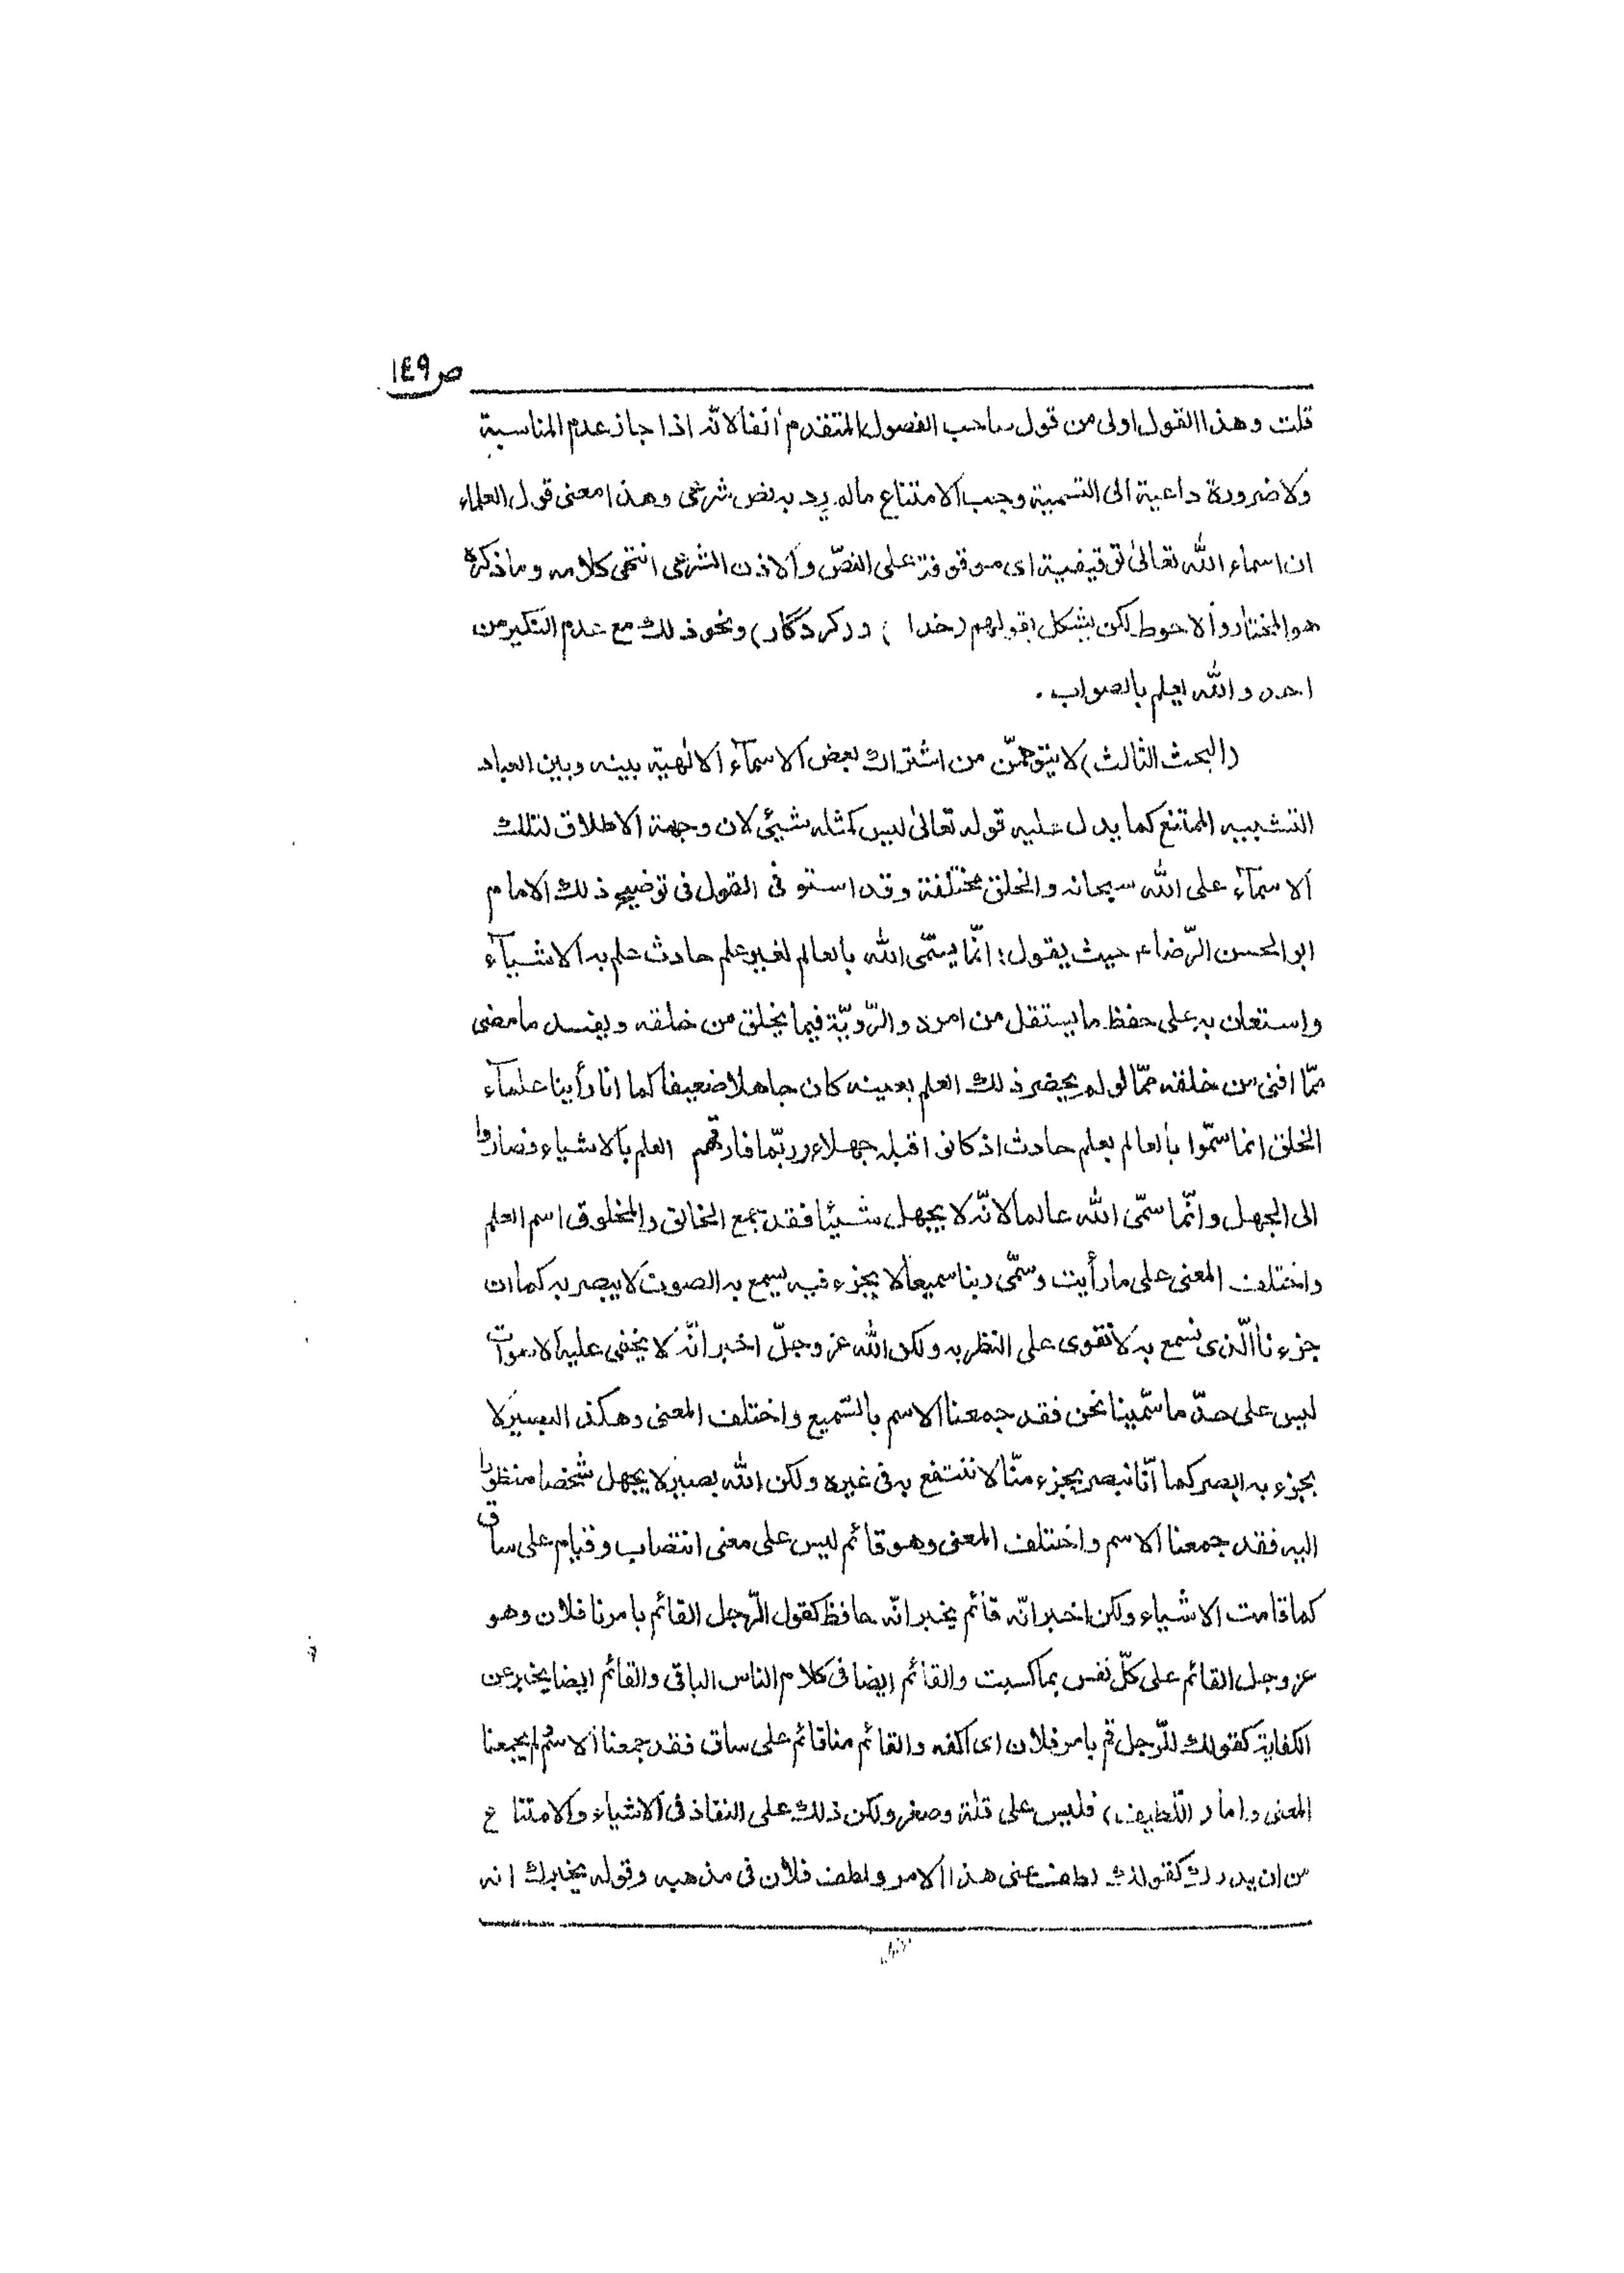 ص ١٤٩
قلت وهذا القول اولى من قول صاحب الفصول المتقدم آنفا لانه اذا جاز عدم المناسبة
ولا ضرورة داعية الى التسمية وجب الامتناع ماله يرد به نص شرعى وهذا معنى قول العلماء
ان اسماء الله تعالى توقيفية اى موقوفة على النصّ والاذن الشرعى انتهى كلامه وما ذكره
هو المختار والاحوط لكن يشكل بقولهم (خدا) و(كردگار) ونحو ذلك مع عدم النكير من
احد والله يعلم بالصواب.
(البحث الثالث) لا يتوهمّن من اشتراك بعض الاسمآء الالهية بينه وبين العباد
التشبيه الممتنع كما يدل عليه قوله تعالى ليس كمثله شيئ لان وجهة الاطلاق لتلك
الاسمآء على الله سبحانه والخلق مختلفة وقد استوفى القول فى توضيح ذلك الامام
ابو الحسن الرّضاء حيث يقول: انّما يسمّى الله بالعالم لغير علم حادث علم به الاشيآء
واستعان به على حفظ ما يستقل من امره والرّويّة فيما يخلق من خلقه ويفسد ما مضى
ممّا افنى من خلقه ممّا لو لم يحضر ذلك العلم بعينه كان جاهلا ضعيفا كما انا رأينا علمآء
الخلق انما سمّوا بالعالم بعلم حادث اذ كانوا قبله جهلاء وربّما فارقهم العلم بالاشياء فصاروا
الى الجهل وانّما سمّى الله عالما لانّه لا يجهل شيئا فقد جمع الخالق والمخلوق اسم العلم
واختلف المعنى على ما رأيت وسمّى ربنا سميعا لا بجزء فيه يسمع به الصوت لا يبصر به كما ان
جزءنا الّذى نسمع به لا نقوى على النظر به ولكن الله عز وجلّ اخبر انّه لا يخفى عليه الاصوات
ليس على حدّ ما سمّينا نحن فقد جمعنا الاسم بالسّميع واختلف المعنى وهكذ البصير لا
بجزء به ابصر كما انّا نبصر بجزء منّا لا ننتفع به فى غيره ولكن الله بصير لا يجهل شخصا منظورا
اليه فقد جمعنا الاسم واختلف المعنى وهو قائم ليس على معنى انتصاب وقيام على ساق
كما قامت الاشياء ولكن اخبر انّه قائم يخبر انّه حافظ كقول الّرجل القائم بامرنا فلان وهو
عز وجل القائم على كلّ نفس بما كسبت والقائم ايضا فى كلام الناس الباقى والقائم ايضا يخبر عن
الكفاية كقولك للّرجل قم بامر فلان اى اكفه والقائم منا قائم على ساق فقد جمعنا الاسم ولم يجمعنا
المعنى واما (اللّطيف) فليس على قلة وصغر ولكن ذلك على النفاذ فى الاشياء والامتناع
من ان يدرك كقولك لطف عنى هذا الامر ولطف فلان فى مذهبه وقوله يخبرك انه